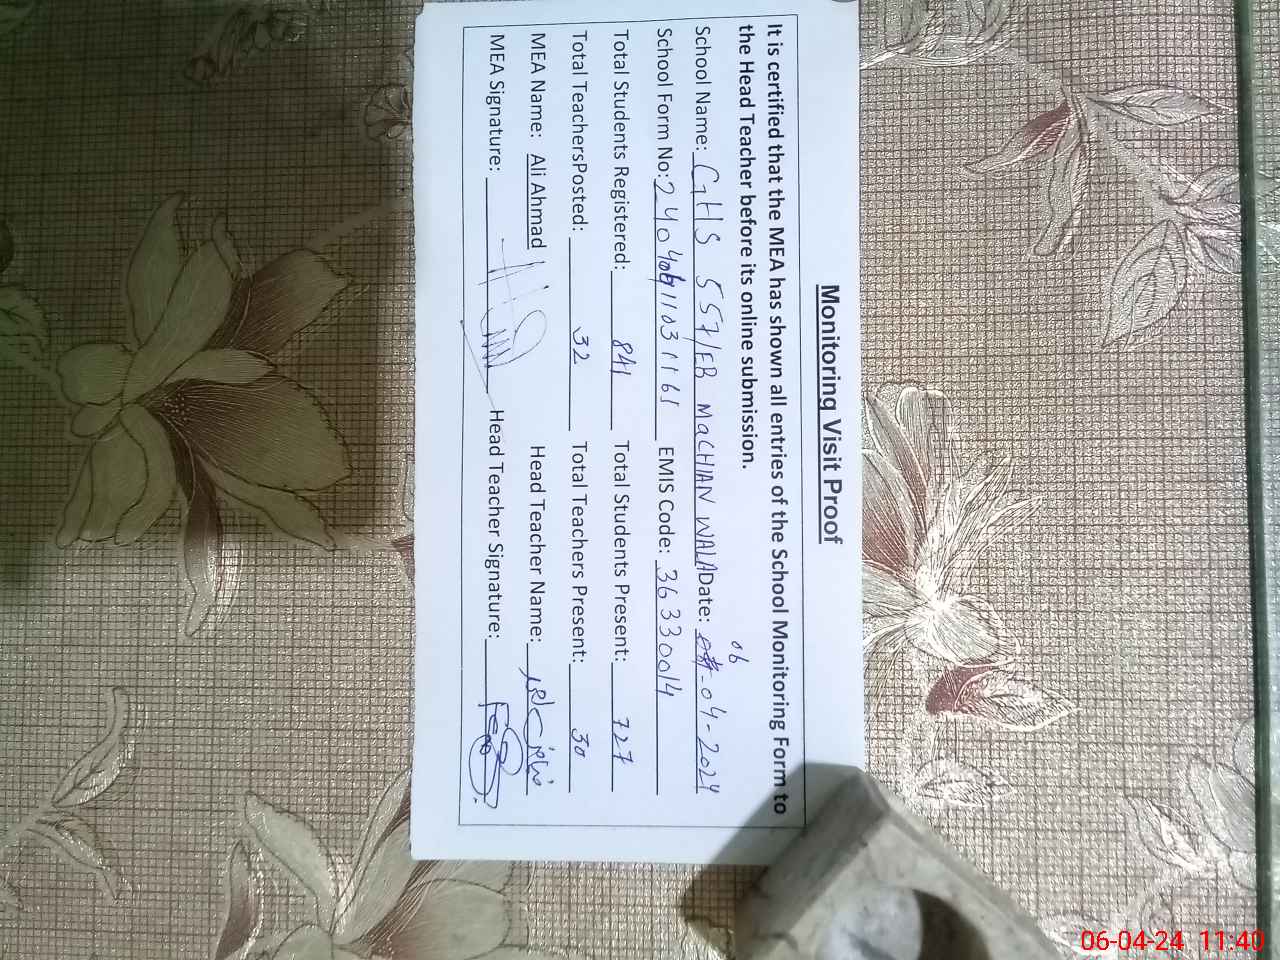 Monitoring Visit Proof
It is certified that the MEA has shown all entries of the School Monitoring Form to
the Head Teacher before its online submission.
School Name: GHS 557/EB MACHIAN WALA Date: 06-04-2024
School Form No: EMIS Code: 36330014
Total Students Registered: 841 Total Students Present: 727
Total TeachersPosted: 32 Total Teachers Present: 30
MEA Name: Ali Ahmad Head Teacher Name:
MEA Signature: Head Teacher Signature:
06-04-24 11:40